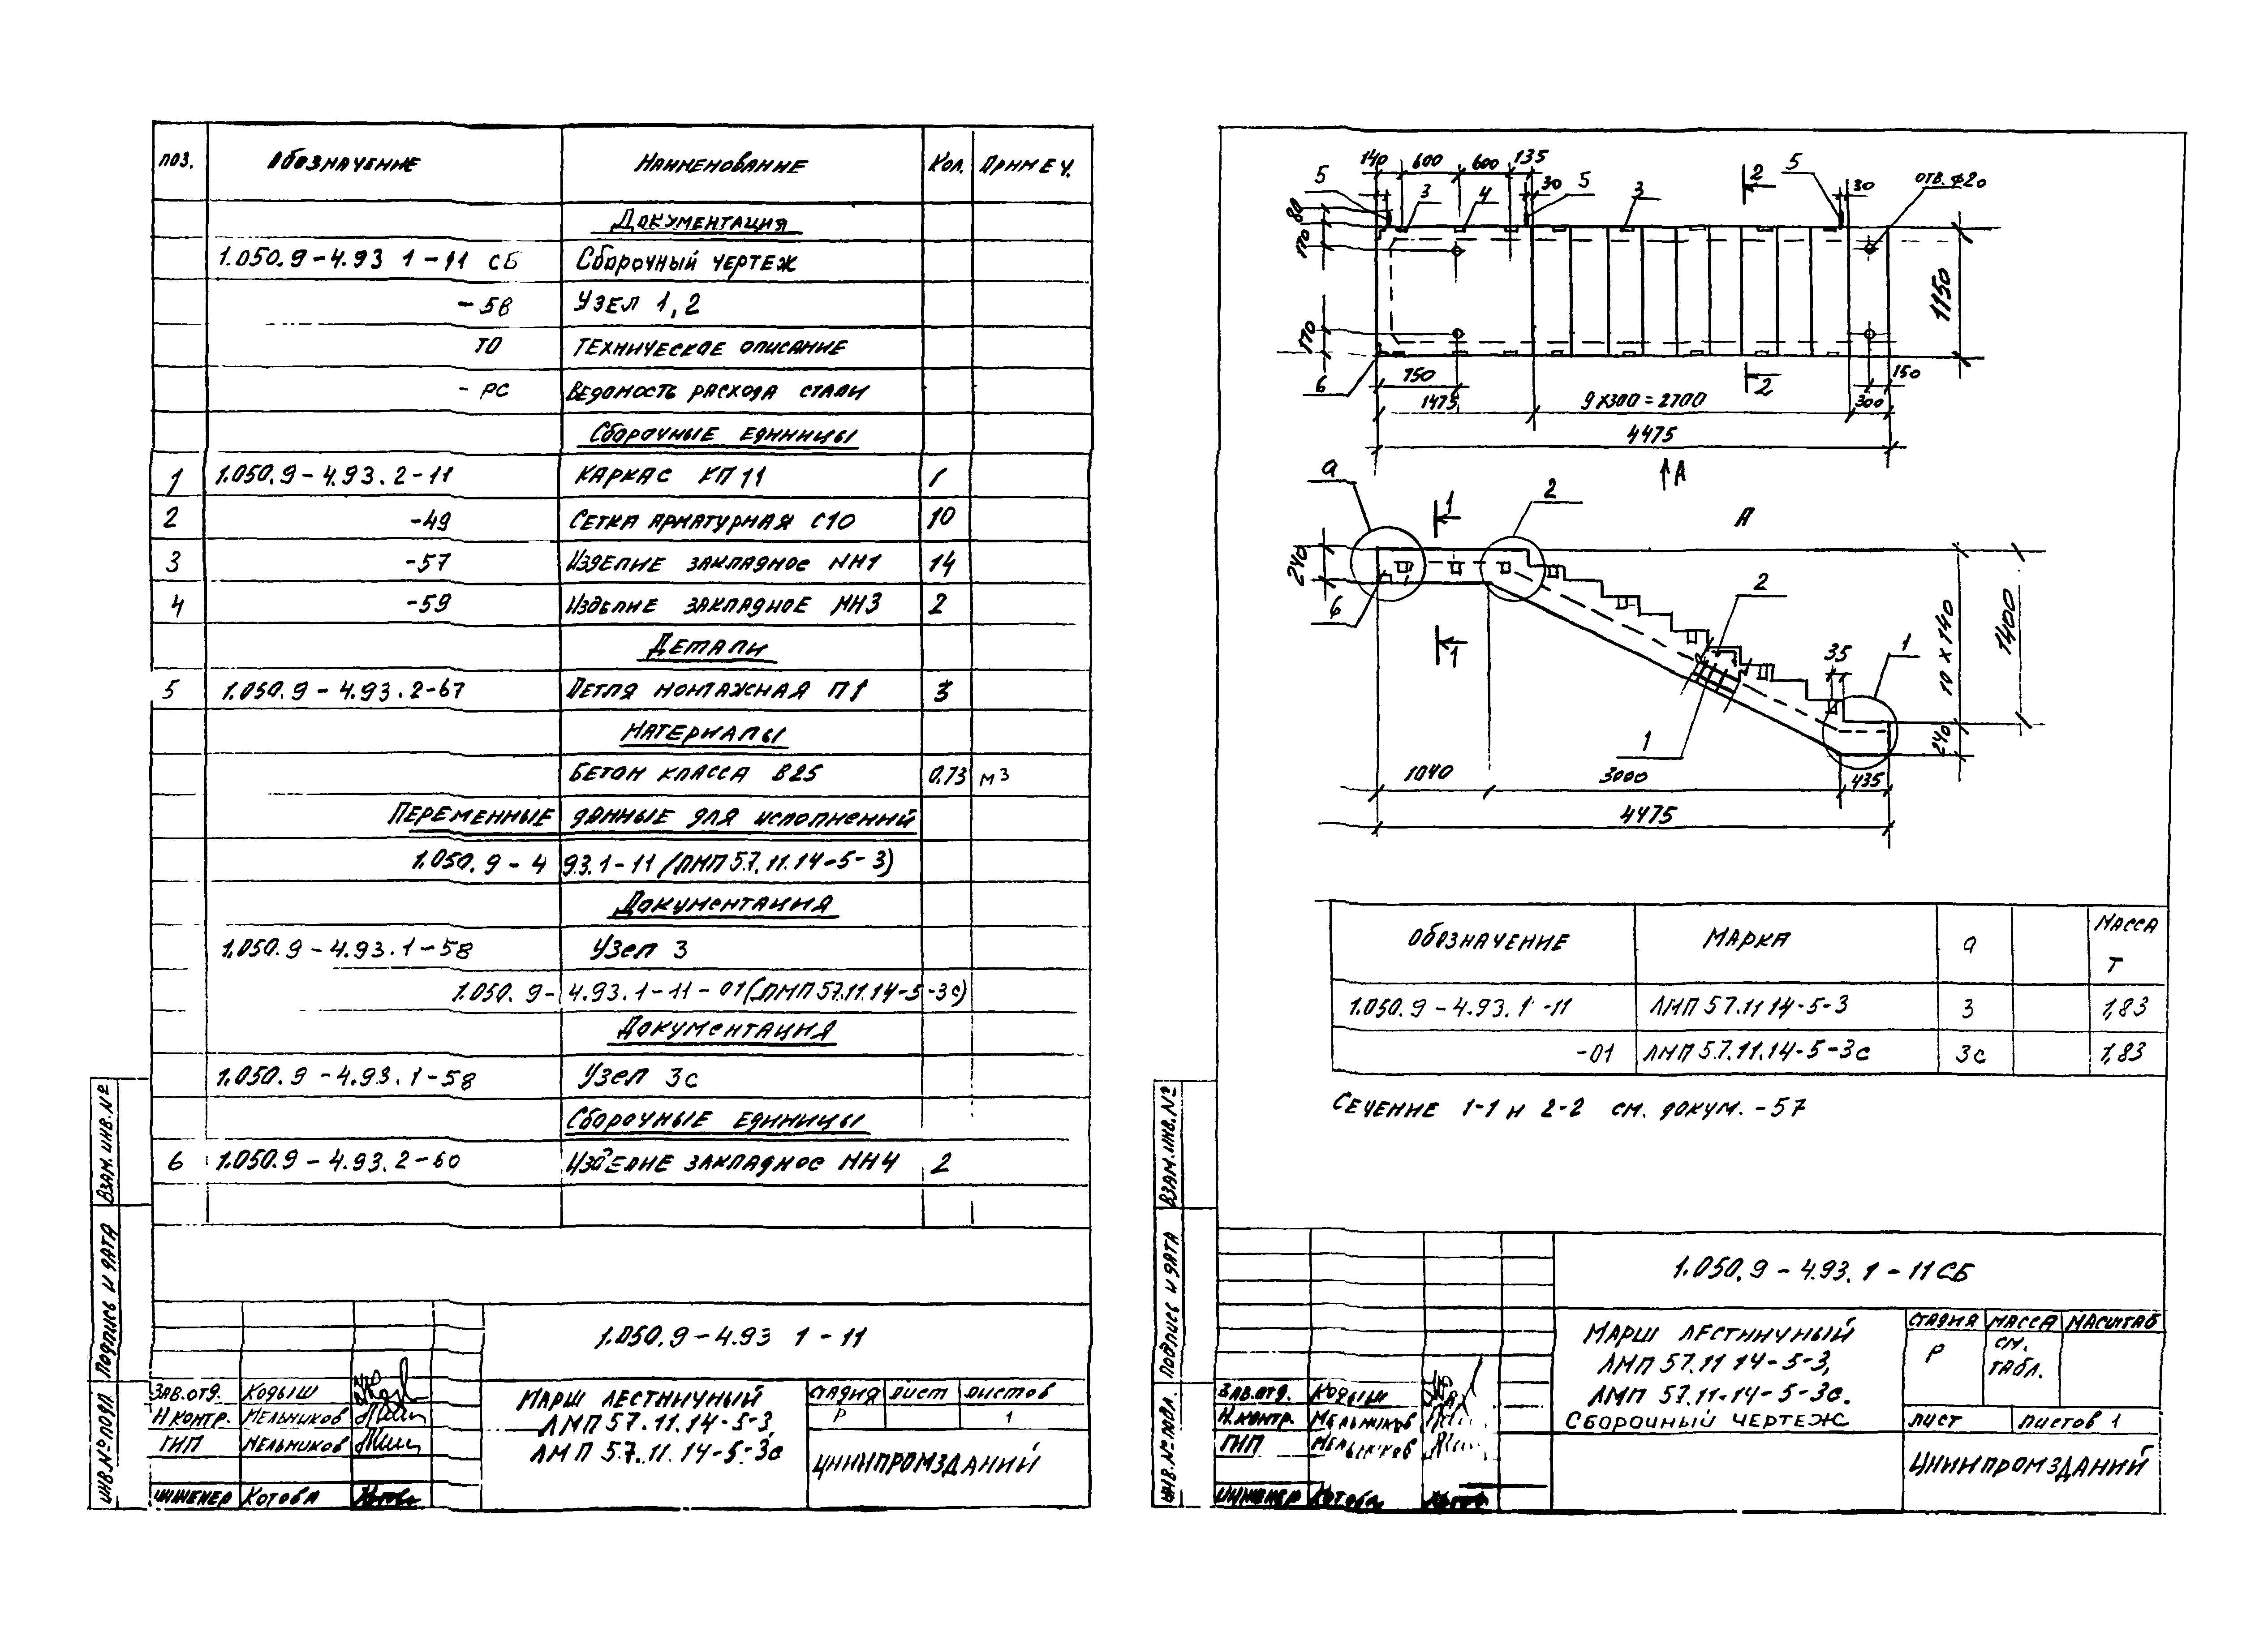 поз. Обозначение Наименование Кол. Примеч.
Документация
1.050.9-4.93 1-11 СБ Сборочный чертеж
-58 Узел 1, 2
ТО Техническое описание
- РС Ведомость расхода стали
Сборочные единицы
1 1.050.9-4.93.2-11 Каркас КП11 1
2 -49 Сетка арматурная С10 10
3 -57 Изделие закладное МН1 14
4 -59 Изделие закладное МН3 2
Детали
5 1.050.9-4.93.2-67 Петля монтажная П1 3
Материалы
Бетон класса В25 0,73 м3
Переменные данные для исполнений
1.050.9-4 93.1-11 (ЛМП57.11.14-5-3)
Документация
1.050.9-4.93.1-58 Узел 3
1.050.9-4.93.1-11-01(ЛМП57.11.14-5-3с)
Документация
1.050.9-4.93.1-58 Узел 3с
Сборочные единицы
6 1.050.9-4.93.2-60 Изделие закладное МН4 2
Взам.инв.№
Подпись и дата
Инв.№ подл.
1.050.9-4.93 1-11
Зав.отд. Кодыш
Н контр. Мельников
ГИП Мельников
Инженер Котова
Марш лестничный
ЛМП57.11.14-5-3,
ЛМП 57.11.14-5-3с
Стадия Лист Листов
Р 1
ЦНИИПРОМЗДАНИЙ
140 600 600 135
5 3 4 30 5 3 2 5 30 отв. ф20
80
170
170
1150
6 750 2 150
1475 9х300=2700 300
4475
А
а 1 2 А
240
6 2
1
35 1
10 х 140
1400
240
1
1040 3000 435
4475
Обозначение Марка а Масса
т
1.050.9-4.93.1-11 ЛМП57.11 14-5-3 3 1,83
-01 ЛМП57.11.14-5-3с 3с 1,83
Сечение 1-1 и 2-2 см. докум. -57
Взам.инв.№
Подпись и дата
Инв.№ подл.
1.050.9-4.93.1-11СБ
Зав.отд. Кодыш
Н.контр. Мельников
ГИП Мельников
Инженер Котова
Марш лестничный
ЛМП57.11 14-5-3,
ЛМП 57.11.14-5-3с.
Сборочный чертеж
Стадия Масса Масштаб
Р см.
табл.
Лист Листов 1
ЦНИИПРОМЗДАНИЙ